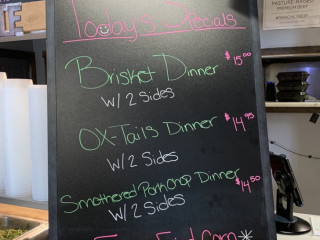 Today's Specials
Brisket Dinner $15.00
W/ 2 Sides
OX-Tails Dinner $14.95
W/ 2 Sides
Smothered Porkchop Dinner $14.50
W/ 2 Sides
Corn